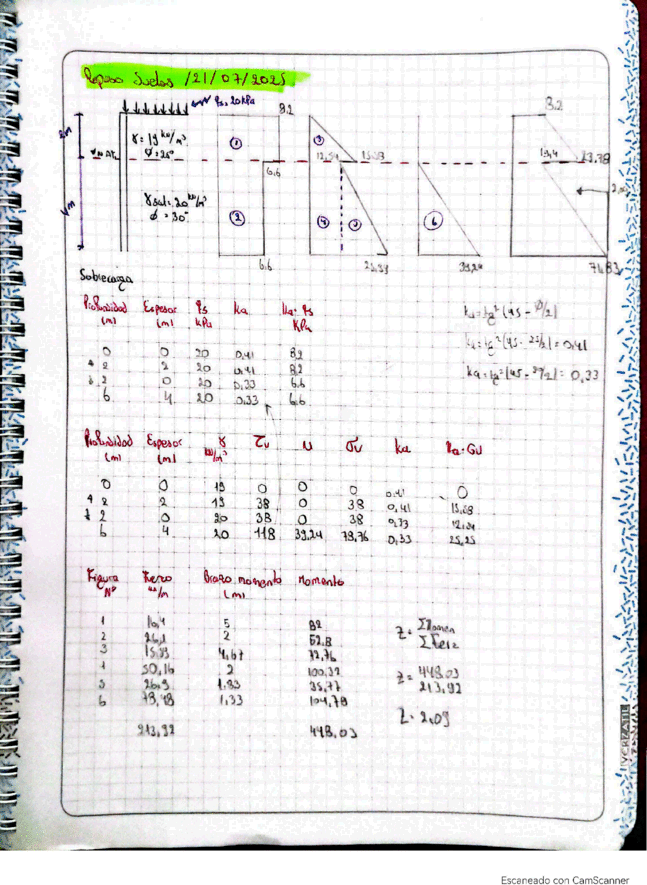 Repaso Suelos /21/07/2025
qs = 20 kPa
8.2
8.2
2m
γ = 19 kN/m³
①
③
N.A.F.
12,54
15.33
13,4
23.78
6.6
4m
γsat = 20 kN/m³
ϕ = 30°
②
④
⑤
⑥
6.6
25.33
39,24
71.83
Sobrecarga
Profundidad Espesor qs ka ka·qs
(m) (m) kPa KPa
0 0 20 0,41 8,2
↑ 2 2 20 0,41 8,2
↓ 2 0 20 0,33 6.6
6 4 20 0.33 6.6
ka = tg² (45 - ϕ/2)
ka = tg² (45 - 25/2) = 0,41
ka = tg² (45 - 30/2) = 0,33
Profundidad Espesor γ τv u σv ka ka·σv
(m) (m) kN/m³
0 0 19 0 0 0 0,41 0
↑ 2 2 19 38 0 38 0,41
↓ 2 0 20 38 0 38 0,33
6 4 20 118 39.24 78,76 0,33
Figura Fuerza Brazo momento Momento
N° kN/m (m)
1 16,4 5 82
2 26,4 2 52.8
3 4,67 72,76
4 50,16 2 100,32
5 26,9 1.33 35,77
6 78,48 1,33 104,78
213,92 448,03
Z = 448.03
213,92
Z = 2,09
VERZATIL
Escaneado con CamScanner